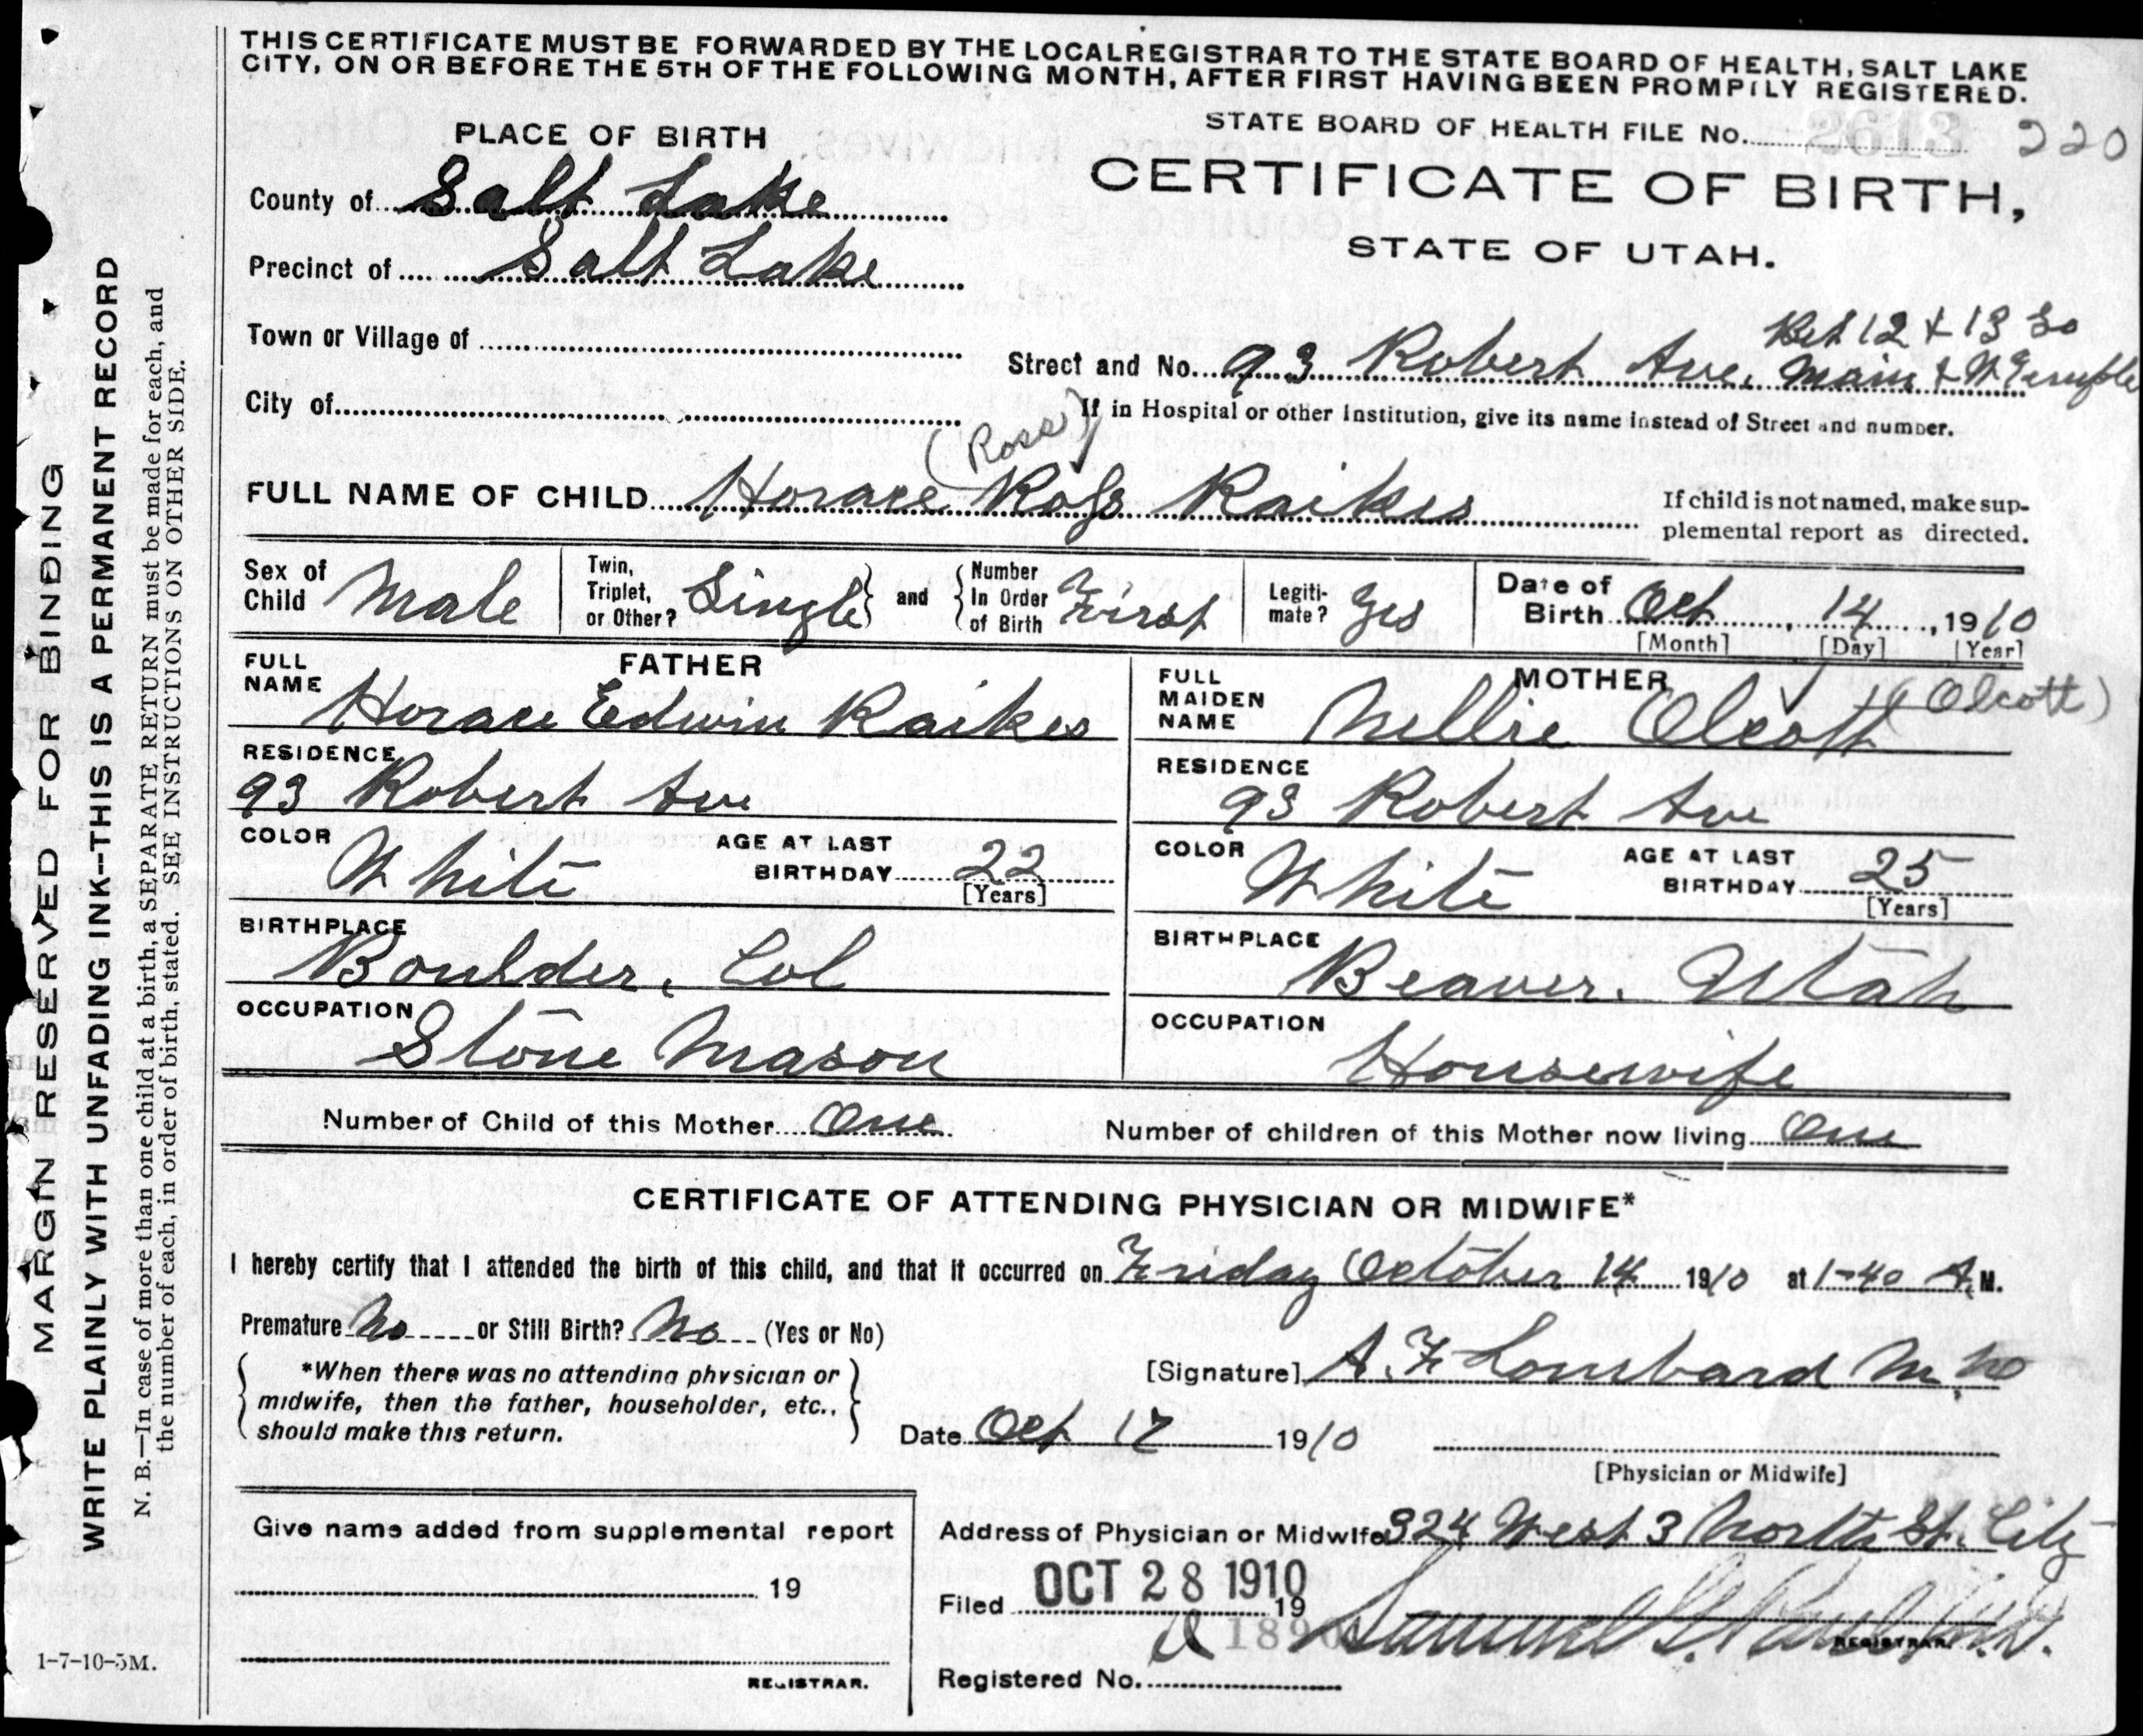 THIS CERTIFICATE MUST BE FORWARDED BY THE LOCAL REGISTRAR TO THE STATE BOARD OF HEALTH, SALT LAKE
CITY, ON OR BEFORE THE 5TH OF THE FOLLOWING MONTH, AFTER FIRST HAVING BEEN PROMPILY REGISTERED.
STATE BOARD OF HEALTH FILE No. 2613 220
PLACE OF BIRTH
CERTIFICATE OF BIRTH,
STATE OF UTAH.
County of Salt Lake
Precinct of Salt Lake
Town or Village of
Bet 12 & 13 So
Street and No. 93 Robert Ave. Main & W Temple
City of
If in Hospital or other Institution, give its name instead of Street and number.
(Ross)
FULL NAME OF CHILD Horace Ross Raikes
If child is not named, make sup-
plemental report as directed.
Sex of Child Male
Twin, Triplet, or Other? Single and Number In Order of Birth First
Legiti-mate? Yes
Date of Birth Oct 14, 1910
[Month] [Day] [Year]
FATHER
FULL NAME Horace Edwin Raikes
RESIDENCE
93 Robert Ave
COLOR White
AGE AT LAST BIRTHDAY 22
[Years]
BIRTHPLACE
Boulder, Col
OCCUPATION
Stone Mason
MOTHER
FULL MAIDEN NAME Nellie Olcott (Olcott)
RESIDENCE
93 Robert Ave
COLOR White
AGE AT LAST BIRTHDAY 25
[Years]
BIRTHPLACE
Beaver, Utah
OCCUPATION
Housewife
Number of Child of this Mother One
Number of children of this Mother now living One
CERTIFICATE OF ATTENDING PHYSICIAN OR MIDWIFE*
I hereby certify that I attended the birth of this child, and that it occurred on Friday October 14 1910 at 1-40 A.M.
Premature No or Still Birth? No (Yes or No)
*When there was no attending physician or
midwife, then the father, householder, etc.,
should make this return.
[Signature] A. F. Lombard M.D
Date Oct 17 1910
[Physician or Midwife]
Give name added from supplemental report
19
REGISTRAR.
Address of Physician or Midwife 324 West 3 North St. City
Filed OCT 28 1910 19
Samuel G. Paul M.D.
REGISTRAR.
Registered No.
1-7-10-5M.
MARGIN RESERVED FOR BINDING
WRITE PLAINLY WITH UNFADING INK—THIS IS A PERMANENT RECORD
N. B.—In case of more than one child at a birth, a SEPARATE RETURN must be made for each, and
the number of each, in order of birth, stated. SEE INSTRUCTIONS ON OTHER SIDE.